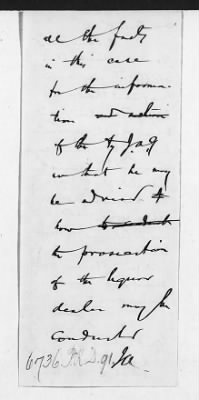 all the facts
in this case
for the informa-
tion and action
of the J.A.G
in that he may
be advised
how
the prosecution
of the liquor
dealer may be
Conducted
6736 P.R.D. 91 Ja